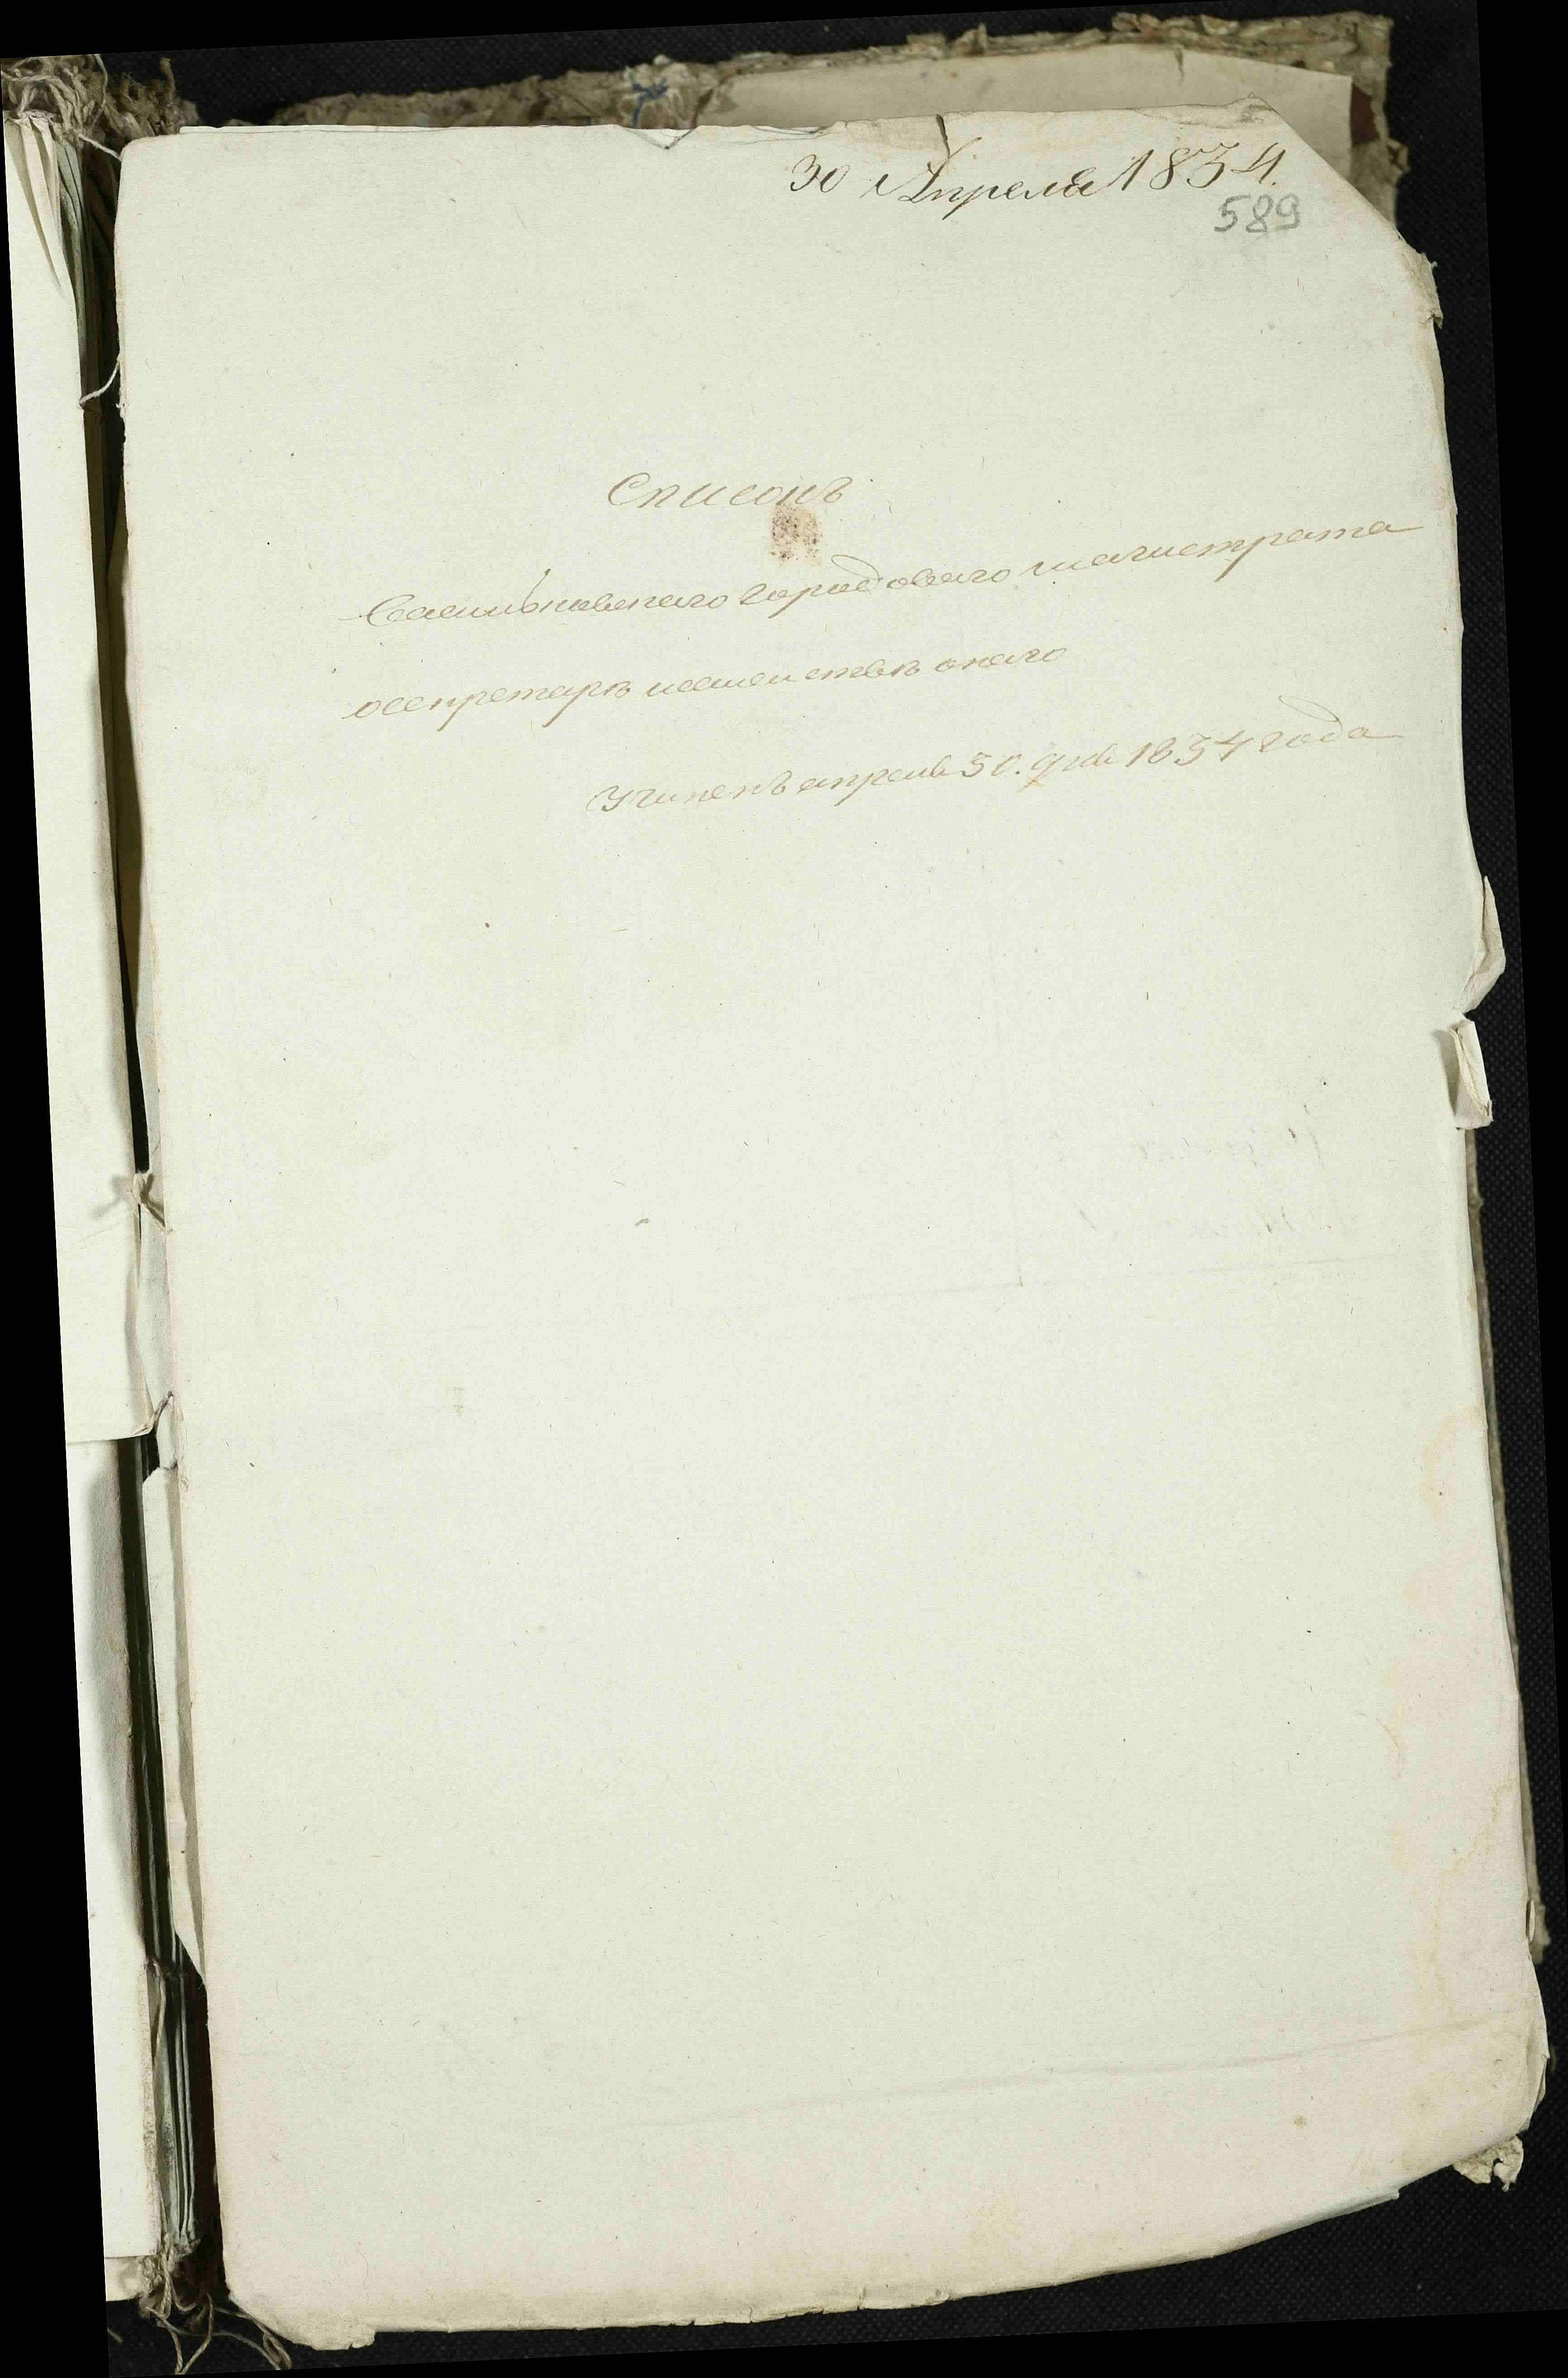 30 Апреля 1834.
589
Списокъ
Васильковскаго городоваго магистрата
осекретарѣ исемействѣ онаго
Учиненъ апреля 30. дня 1834 года